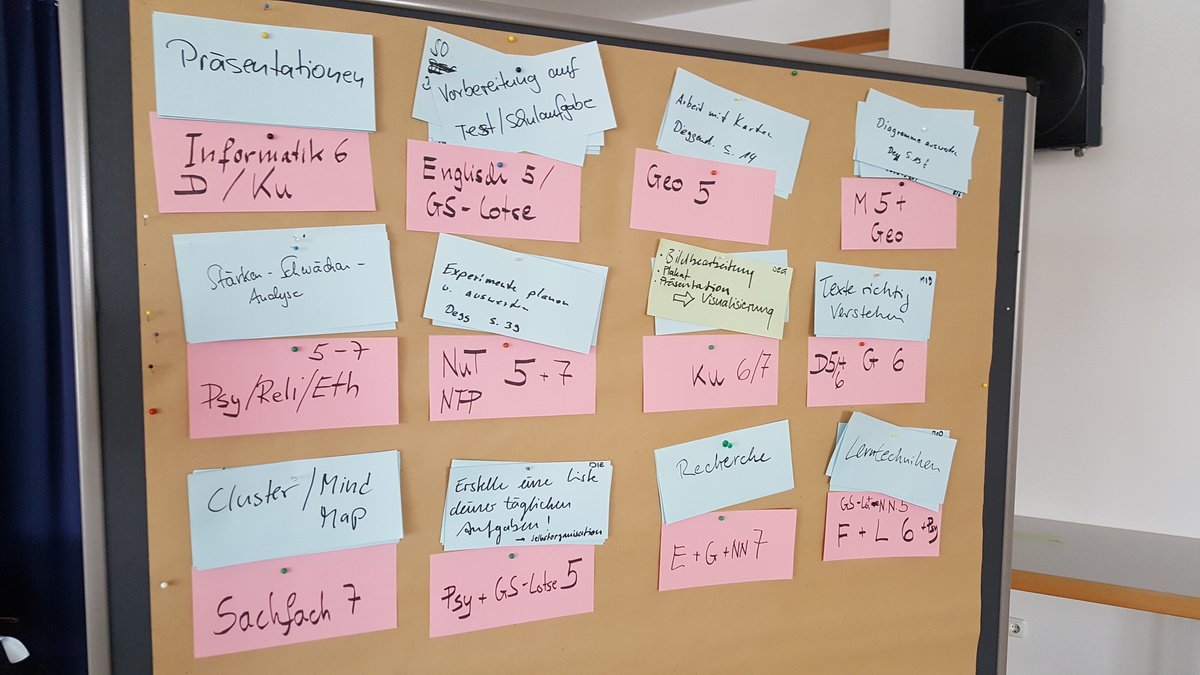 Präsentationen
Informatik 6
D / Ku
SO
Vorbereitung auf
Test/Schulaufgabe
Englisch 5/
GS-Lotse
Arbeit mit Karten
Deggend. S. 14
Geo 5
Diagramme auswerten
Degg S. 13 f
M 5 +
Geo
Stärken-Schwächen-
Analyse
5-7
Psy/Reli/Eth
Experimente planen
u. auswerten
Degg S. 39
NuT 5 + 7
NTP
· Bildbearbeitung DEG
· Plakat
· Präsentation
⇨ Visualisierung
Ku 6/7
Texte richtig
verstehen
D5/+ G 6
6
Cluster/Mind
Map
Sachfach 7
DIE
Erstelle eine Liste
deiner täglichen
Aufgaben!
→ selbstorganisation
Psy + GS-Lotse 5
Recherche
E + G + NN 7
Lerntechniken
GS-Lot N.N. 5
F + L 6 + Psy